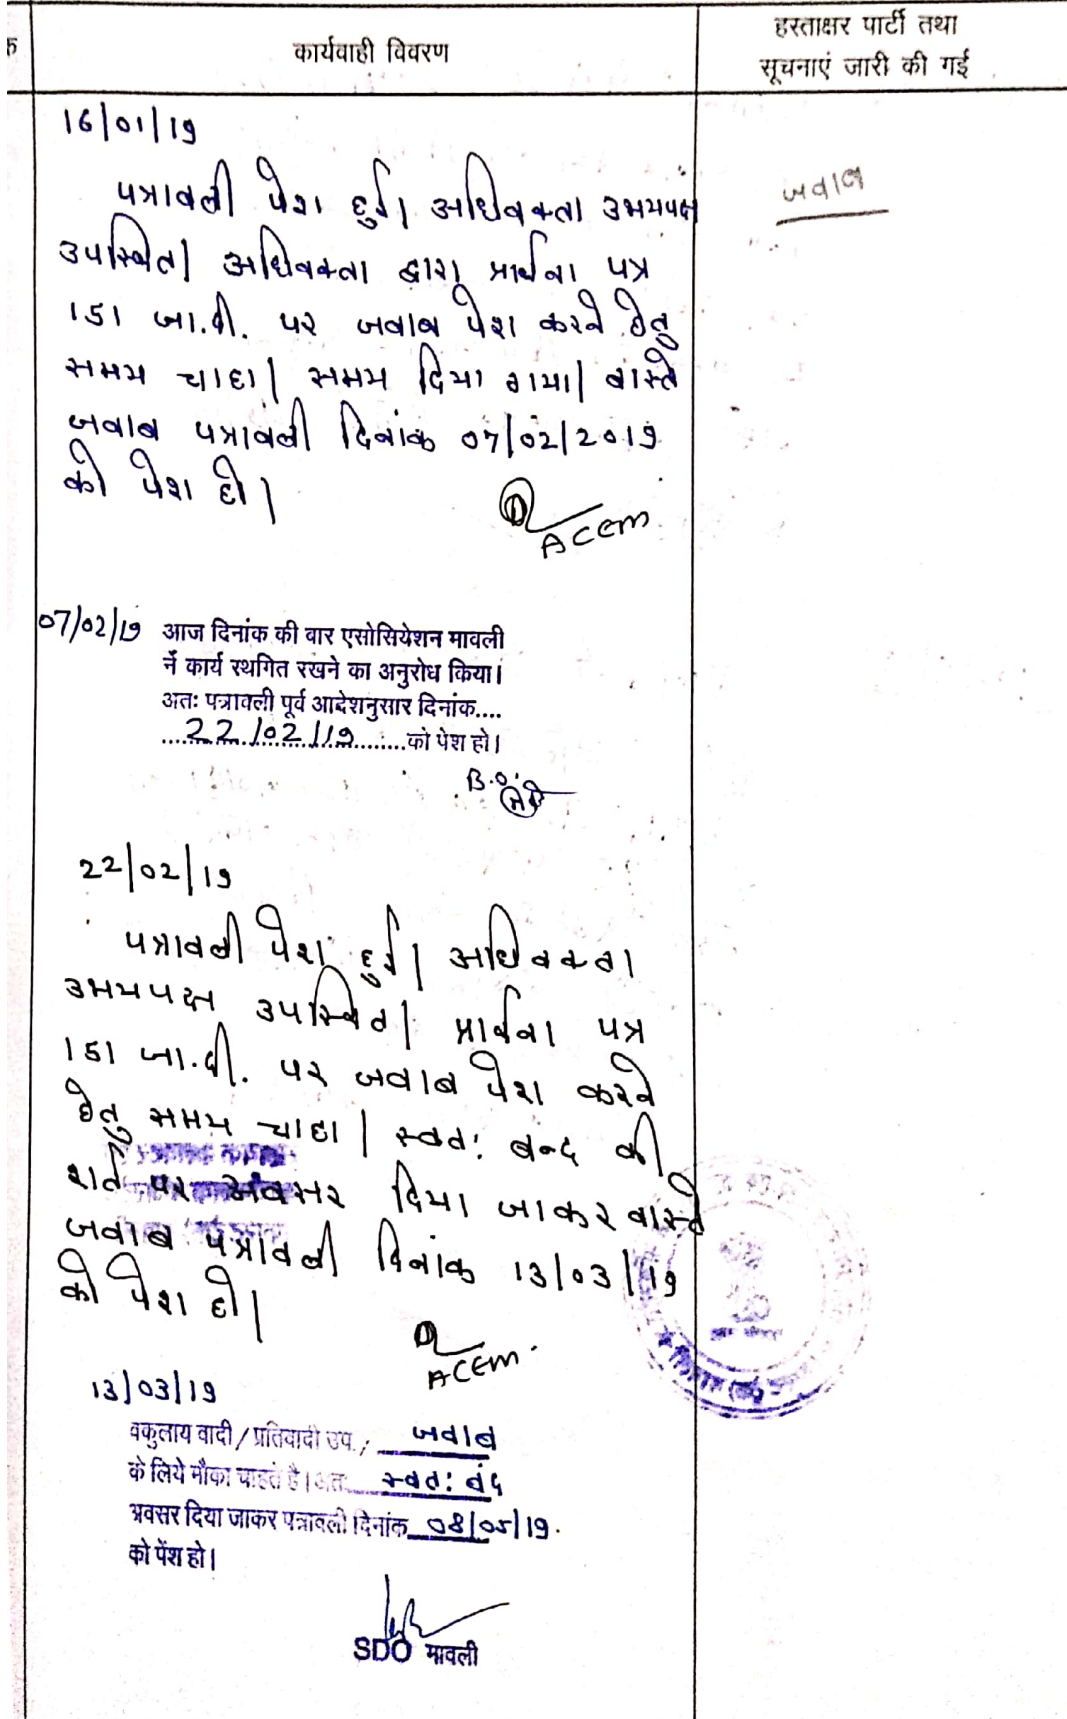 कार्यवाही विवरण
हस्ताक्षर पार्टी तथा
सूचनाएं जारी की गई
16/01/19
पत्रावली पेश हुई। अधिवक्ता उभयपक्ष
उपस्थित। अधिवक्ता द्वारा प्रार्थना पत्र
151 जा.दी. पर जवाब पेश करने हेतु
समय चाहा। समय दिया गया। वास्ते
जवाब पत्रावली दिनांक 07/02/2019
को पेश हो।
जवाब
ACEM
07/02/19 आज दिनांक की वार एसोसियेशन मावली
नें कार्य स्थगित रखने का अनुरोध किया।
अतः पत्रावली पूर्व आदेशनुसार दिनांक....
22/02/19 को पेश हो।
B.O.
22/02/19
पत्रावली पेश हुई। अधिवक्ता
उभयपक्ष उपस्थित। प्रार्थना पत्र
151 जा.दी. पर जवाब पेश करने
हेतु समय चाहा। स्वतः बन्द की
शर्त पर अवसर दिया जाकर वास्ते
जवाब पत्रावली दिनांक 13/03/19
को पेश हो।
ACEM
13/03/19
वकुलाय वादी/प्रतिवादी उप./ जवाब
के लिये मौका चाहते है। अतः स्वतः बंद
अवसर दिया जाकर पत्रावली दिनांक 08/05/19.
को पेंश हो।
SDO मावली